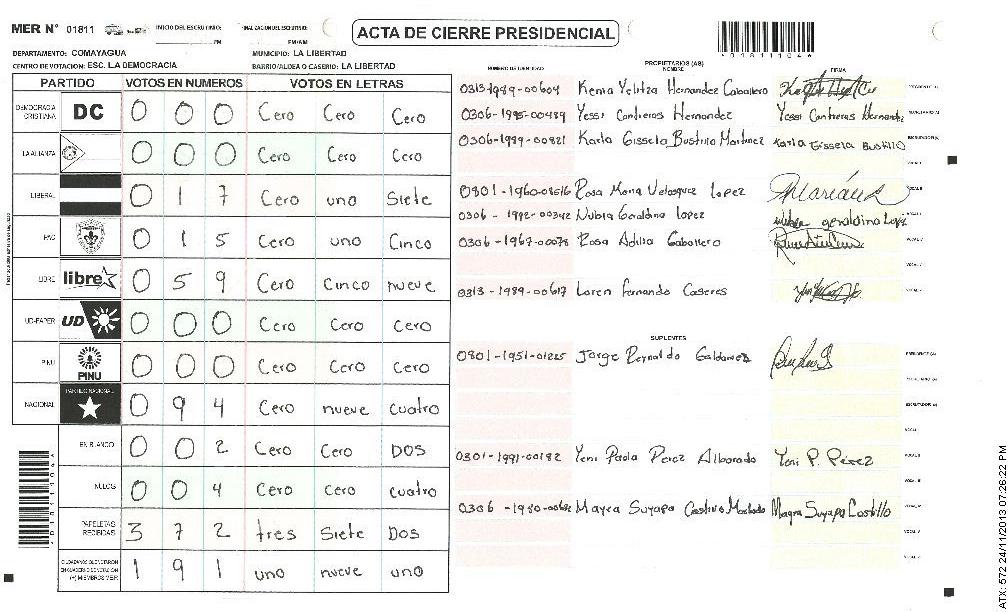 MER N° 01811 INICIO DEL ESCRUTINIO: FINALIZACION DEL ESCRUTINIO:
PM PM/AM
ACTA DE CIERRE PRESIDENCIAL
DEPARTAMENTO: COMAYAGUA MUNICIPIO: LA LIBERTAD
CENTRO DE VOTACION: ESC. LA DEMOCRACIA BARRIO/ALDEA O CASERIO: LA LIBERTAD
PARTIDO VOTOS EN NUMEROS VOTOS EN LETRAS
DEMOCRACIA CRISTIANA DC 0 0 0 Cero Cero Cero
LA ALIANZA 0 0 0 Cero Cero Cero
LIBERAL 0 1 7 Cero uno Siete
PAC 0 1 5 Cero uno Cinco
LIBRE libre 0 5 9 Cero Cinco nueve
UD-FAPER UD 0 0 0 Cero Cero Cero
PINU PINU 0 0 0 Cero Cero Cero
NACIONAL PARTIDO NACIONAL 0 9 4 Cero nueve cuatro
EN BLANCO 0 0 2 Cero Cero DOS
NULOS 0 0 4 Cero Cero cuatro
PAPELETAS RECIBIDAS 3 7 2 tres Siete Dos
(+) MIEMBROS MER 1 9 1 uno nueve uno
PROPIETARIOS (AS)
NUMERO DE IDENTIDAD NOMBRE FIRMA
0313-1989-00604 Kenia Yelitza Hernandez Caballero
0306-1995-00489 Yessi Contreras Hernandez Yessi Contreras Hernandez
0306-1989-00821 Karla Gissela Bustillo Martinez Karla Gissela Bustillo
0801-1960-08516 Rosa Maria Velasquez Lopez
0306-1992-00342 Nubia Geraldina Lopez Nubia geraldina Lopez
0306-1967-00078 Rosa Adilia Caballero
0313-1989-00617 Loren Fernando Caseres
SUPLENTES
0801-1951-01225 Jorge Bernaldo Galdamez
0301-1991-00182 Yeni Paola Perez Alvarado Yeni P. Pérez
Mayra Suyapa Castillo Mayra Suyapa Costillo
ATX: 572 24/11/2013 07:26:22 PM